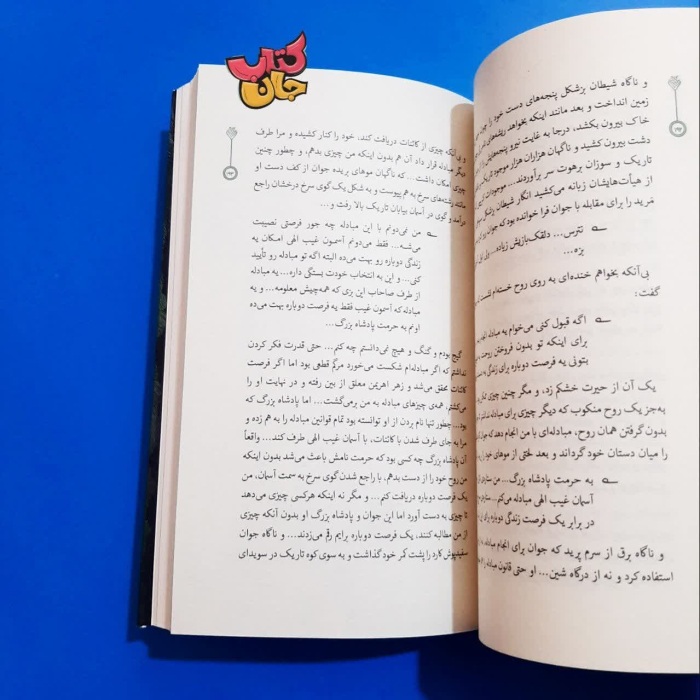 کتاب
جان
و ناگاه شیطان بزشکل پنجه‌های دست خود را
زمین انداخت و بعد مانند اینکه بخواهد ریشه‌های
خاک بیرون بکشد، درجا به غایت نیرو پنجه‌هایش
دشت بیرون کشید و ناگهان هزاران هزار موجود تاریک
تاریک و سوزان برهوت سر برآوردند... موجودات
از هیأت‌هایشان زبانه می‌کشید انگار شیطان بزشکل
مرید را برای مقابله با جوان فرا خوانده بود که جوان
نترس... دلقک‌بازیش زیاده...
بزه...
بی‌آنکه بخواهم خنده‌ای به روی روح خسته‌ام
گفت:
اگه قبول کنی می‌خوام یه مبادله
برای اینکه تو بدون فروختن روحت
بتونی یه فرصت دوباره برای زندگی
یک آن از حیرت خشکم زد، و مگر چنین چیزی
به‌جز یک روح منکوب که دیگر چیزی برای مبادله
بدون گرفتن همان روح، مبادله‌ای با من انجام دهد که جوان
را میان دستان خود گرداند و بعد لختی از موهای خود را
به حرمت پادشاه بزرگ... من
آسمان غیب الهی مبادله می‌کنم...
در برابر یک فرصت زندگی دوباره برای
و ناگاه برق از سرم پرید که جوان برای انجام مبادله
استفاده کرد و نه از درگاه شین... او حتی قانون مبادله را
و بی آنکه چیزی از کائنات دریافت کند، خود را کنار کشیده و مرا طرف
دیگر مبادله قرار داد آن هم بدون اینکه من چیزی بدهم، و چطور چنین
چیزی امکان داشت... که ناگهان موهای بریده جوان از کف دست او
مانند رشته‌های سرخ به هم پیوست و به شکل یک گوی سرخ درخشان راجع
درآمد و گوی در آسمان بیابان تاریک بالا رفت و...
من نمی‌دونم با این مبادله چه جور فرصتی نصیبت
می‌شه... فقط می‌دونم آسمون غیب الهی امکان یه
زندگی دوباره رو بهت می‌ده البته اگه تو مبادله رو تأیید
کنی... و این به انتخاب خودت بستگی داره... یه مبادله
از طرف صاحاب این بزی که همه‌چیش معلومه... و یه
مبادله که آسمون غیب فقط یه فرصت دوباره بهت می‌ده
اونم به حرمت پادشاه بزرگ...
گیج بودم و گنگ و هیچ نمی‌دانستم چه کنم... حتی قدرت فکر کردن
نداشتم که اگر مبادله‌ام شکست می‌خورد مرگم قطعی بود اما اگر فرصت
کائنات محقق می‌شد و زهر اهریمن معلق از بین رفته و در نهایت او را
می‌کشتم، همه‌ی چیزهای مبادله به من برمی‌گشت... اما پادشاه بزرگ که
بود... چطور تنها نام بردن از او توانسته بود تمام قوانین مبادله را به هم زده و
مرا به جای طرف شدن با کائنات، با آسمان غیب الهی طرف کند... واقعاً
آن پادشاه بزرگ چه کسی بود که حرمت نامش باعث می‌شد بدون اینکه
من روح خود را از دست بدهم، با راجع شدن گوی سرخ به سمت آسمان،
یک فرصت دوباره دریافت کنم... و مگر نه اینکه هرکسی چیزی می‌دهد
تا چیزی به دست آورد اما این جوان و پادشاه بزرگ او بدون آنکه چیزی
از من مطالبه کنند، یک فرصت دوباره برایم رقم می‌زدند... و ناگاه جوان
سفیدپوش کارد را پشت کمر خود گذاشت و به سوی کوه تاریک در سویدای